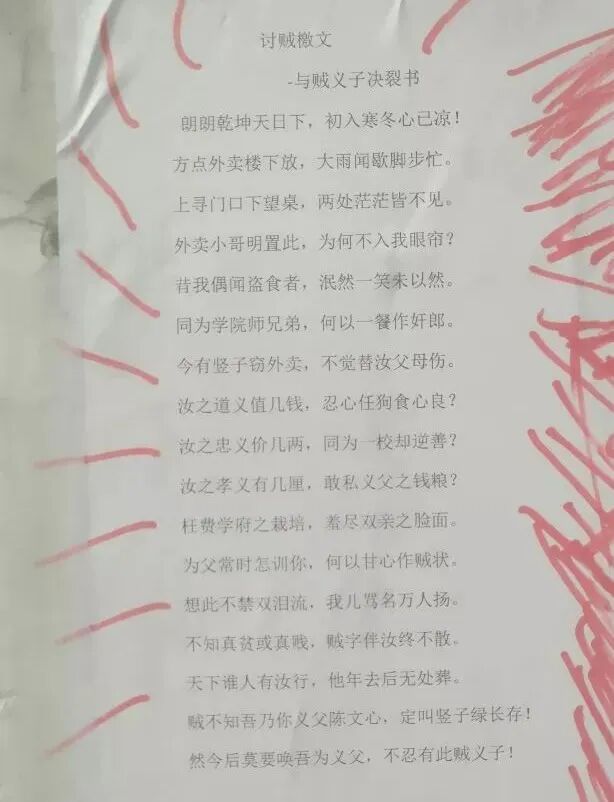 讨贼檄文
-与贼义子决裂书
朗朗乾坤天日下，初入寒冬心已凉！
方点外卖楼下放，大雨闻歇脚步忙。
上寻门口下望桌，两处茫茫皆不见。
外卖小哥明置此，为何不入我眼帘？
昔我偶闻盗食者，泯然一笑未以然。
同为学院师兄弟，何以一餐作奸郎。
今有竖子窃外卖，不觉替汝父母伤。
汝之道义值几钱，忍心任狗食心良？
汝之忠义价几两，同为一校却逆善？
汝之孝义有几厘，敢私义父之钱粮？
枉费学府之栽培，羞尽双亲之脸面。
为父常时怎训你，何以甘心作贼状。
想此不禁双泪流，我儿骂名万人扬。
不知真贫或真贱，贼字伴汝终不散。
天下谁人有汝行，他年去后无处葬。
贼不知吾乃你义父陈文心，定叫竖子绿长存！
然今后莫要唤吾为义父，不忍有此贼义子！